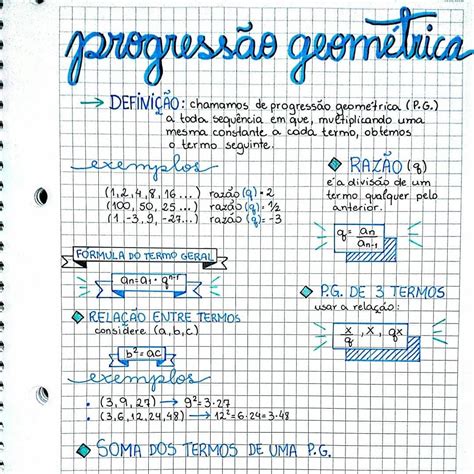 progressão geométrica
→ DEFINIÇÃO: chamamos de progressão geométrica (P.G.)
a toda sequência em que, multiplicando uma
mesma constante a cada termo, obtemos
o termo seguinte.
exemplos
(1,2,4,8,16...) razão(q)=2
(100,50,25...) razão(q)=1/2
(1,-3,9,-27...) razão(q)=-3
RAZÃO (q)
é a divisão de um
termo qualquer pelo
anterior.
q = an/an-1
FÓRMULA DO TERMO GERAL
an=a1·q^n-1
RELAÇÃO ENTRE TERMOS
considere (a,b,c)
b²=ac
P.G. DE 3 TERMOS
usar a relação:
x/q, x, qx
exemplos
• (3,9,27) → 9²=3·27
• (3,6,12,24,48) → 12²=6·24=3·48
SOMA DOS TERMOS DE UMA P.G.